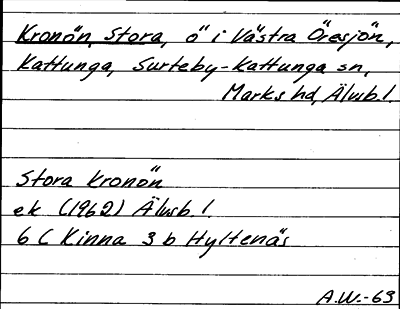 Kronön, Stora, ö i Västra Öresjön,
Kattunga, Surteby-Kattunga sn,
Marks hd, Älvsb. l.
Stora Kronön
ek (1962) Älvsb. l.
6 C Kinna 3 b Hyltenäs
A.W.-63